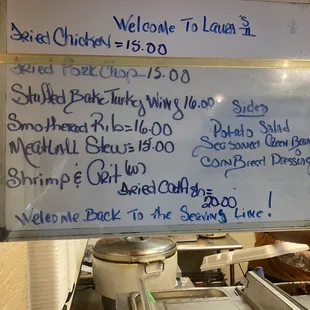 Welcome To Laura's II
Fried Chicken = 15.00
Fried Pork Chop - 15.00
Stuffed Bake Turkey Wing 16.00
Smothered Rib = 16.00
Meatball Stew = 15.00
Shrimp & Grit (w)
Fried Catfish =
20.00
Sides
Potato Salad
Seasoned Green Beans
Cornbread Dressing
Welcome Back To the Serving Line!